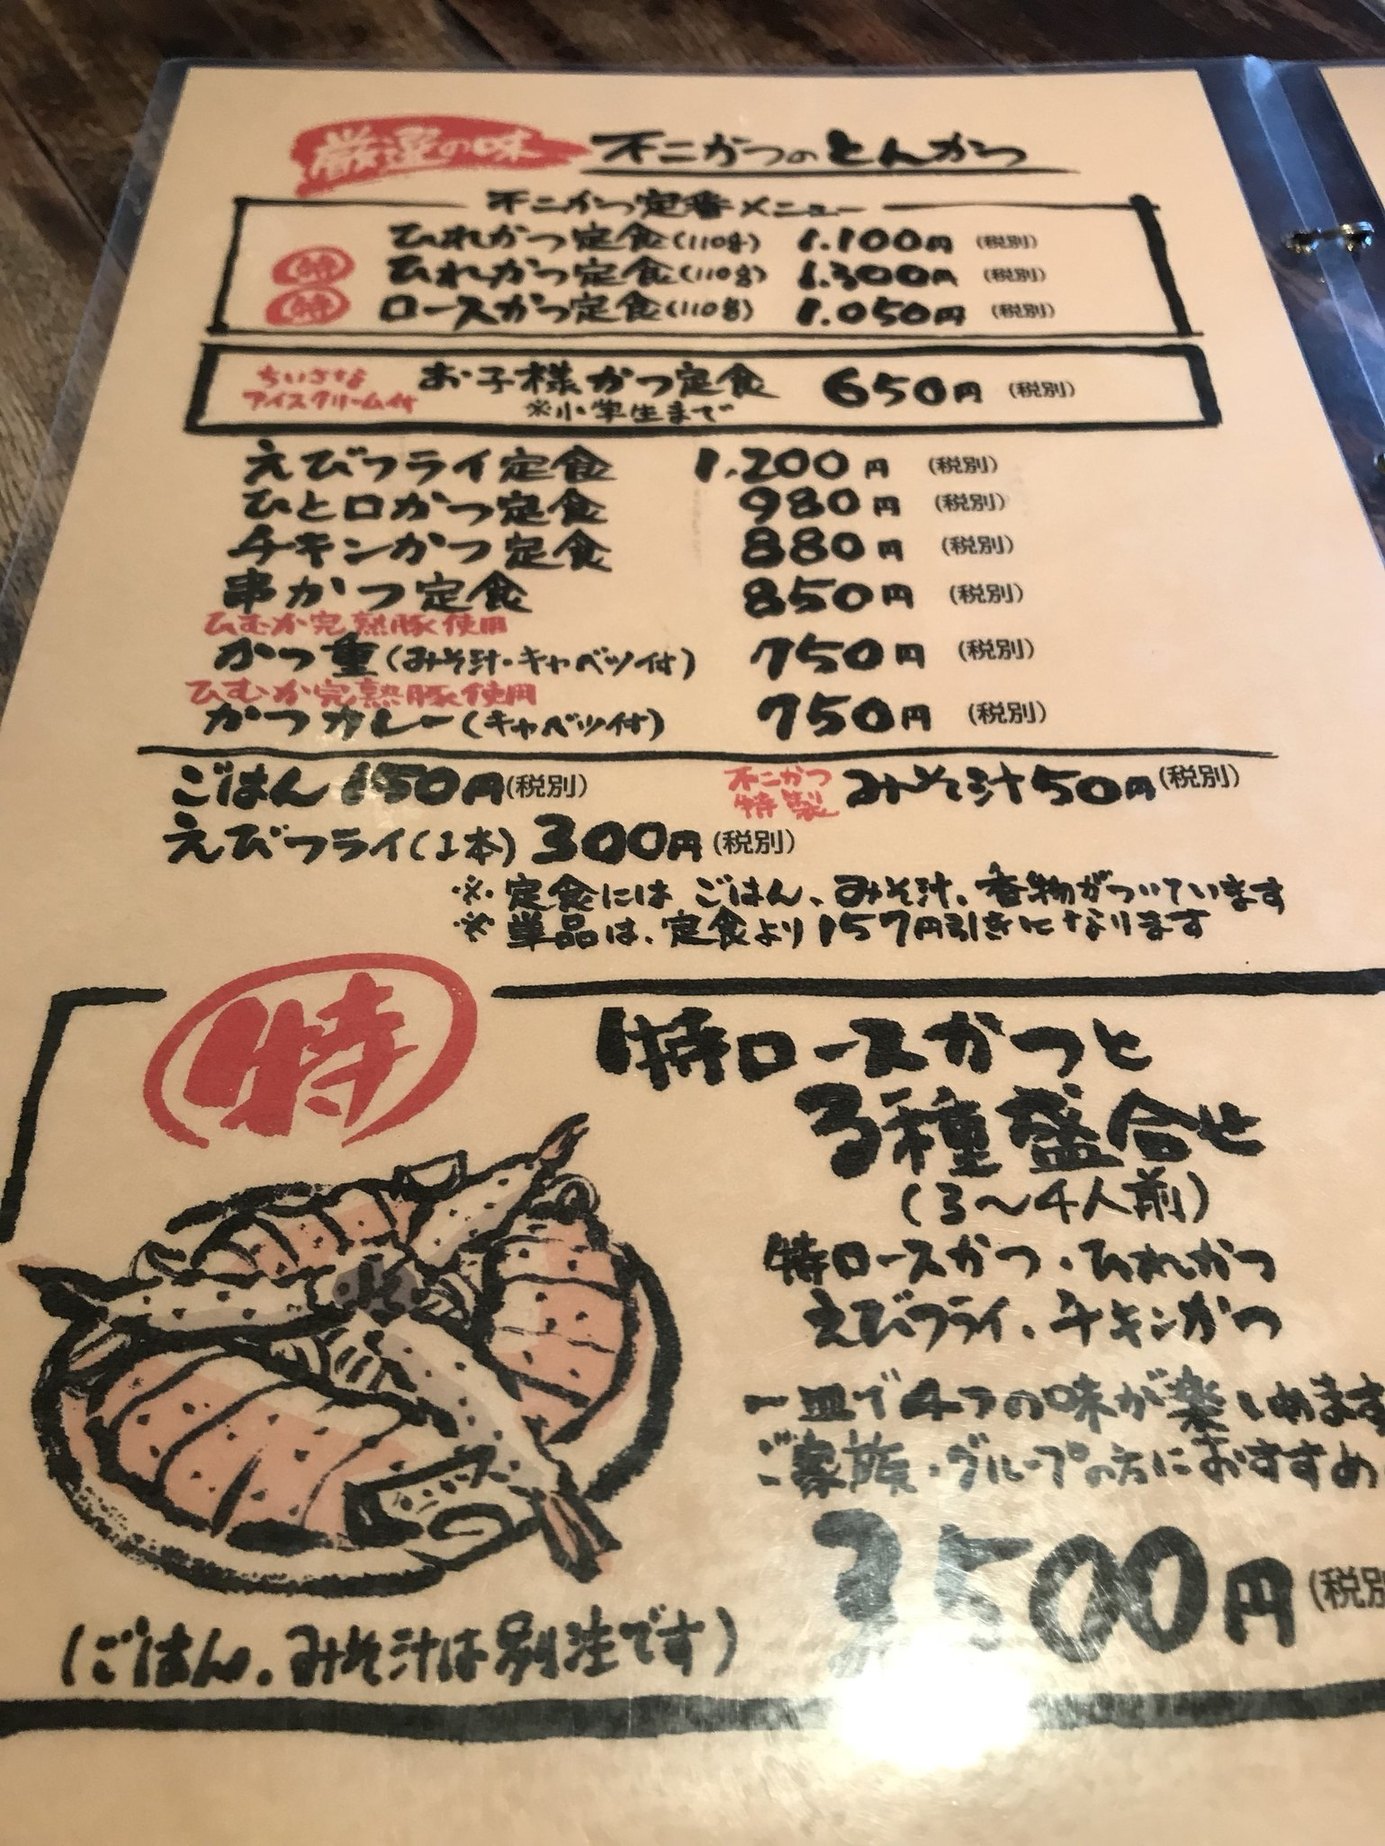 厳選の味 不二かつのとんかつ
不二かつ定番メニュー
ひれかつ定食(110g) 1.100円 (税別)
特 ひれかつ定食(110g) 1.300円 (税別)
特 ロースかつ定食(110g) 1.050円 (税別)
ちいさな
アイスクリーム付
お子様かつ定食 650円 (税別)
※小学生まで
えびフライ定食 1.200円 (税別)
ひと口かつ定食 980円 (税別)
チキンかつ定食 880円 (税別)
串かつ定食 850円 (税別)
ひむか完熟豚使用
かつ重(みそ汁・キャベツ付) 750円 (税別)
ひむか完熟豚使用
かつカレー(キャベツ付) 750円 (税別)
ごはん 150円(税別)
不二かつ
特製
みそ汁50円(税別)
えびフライ(1本) 300円(税別)
※定食には ごはん、みそ汁、香物がついています
※単品は、定食より157円引きになります
特
特ロースかつと
3種盛合せ
(3〜4人前)
特ロースかつ・ひれかつ
えびフライ・チキンかつ
一皿で4つの味が楽しめます
ご家族・グループの方におすすめ
3500円 (税別
(ごはん、みそ汁は別注です)